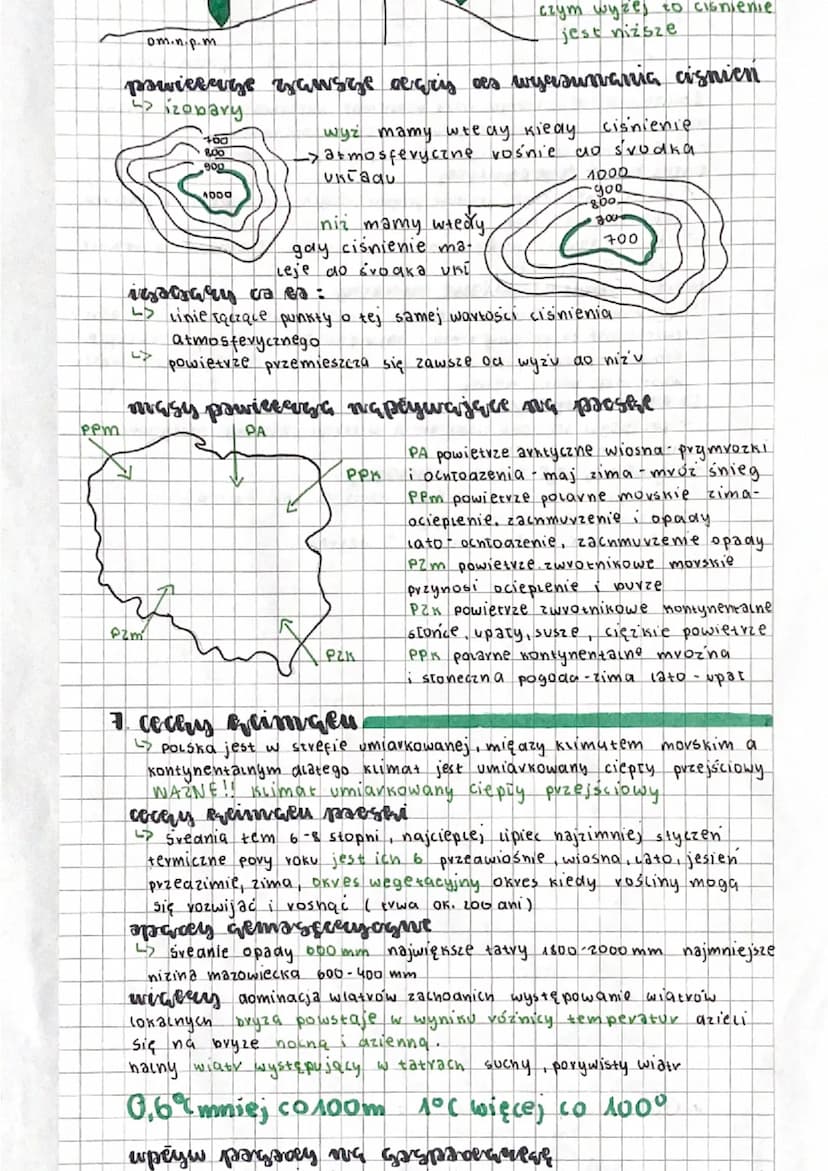 czym wyżej to ciśnienie
jest niższe
0m.n.p.m
powietrze zawsze dąży do wyrównania ciśnień
↳ izobary
700
800
900
1000
wyż mamy wtedy kiedy ciśnienie
→ atmosferyczne rośnie do środka
układu
1000
900
800
700
niż mamy wtedy
gdy ciśnienie ma-
leje do środka ukł
izobary co to :
↳ linie łączące punkty o tej samej wartości ciśnienia
atmosferycznego
↳ powietrze przemieszcza się zawsze od wyżu do niżu
masy powietrza napływające na polskę
PPm
PA
PPK
PZm
PZK
PA powietrze arktyczne wiosna - przymrozki
i ochłodzenia - maj zima - mróz śnieg
PPm powietrze polarne morskie zima-
ocieplenie, zachmurzenie i opady
lato - ochłodzenie, zachmurzenie opady
PZm powietrze zwrotnikowe morskie
przynosi ocieplenie i burze
PZK powietrze zwrotnikowe kontynentalne
słońce, upały, susze, ciężkie powietrze
PPK polarne kontynentalne mroźna
i słoneczna pogoda - zima lato - upał
7. cechy klimatu
↳ Polska jest w strefie umiarkowanej, między klimatem morskim a
kontynentalnym dlatego klimat jest umiarkowany ciepły przejściowy
WAŻNE!! klimat umiarkowany ciepły przejściowy
cechy klimatu polski
↳ średnia tem 6-8 stopni, najcieplej lipiec najzimniej styczeń
termiczne pory roku jest ich 6 przedwiośnie, wiosna, lato, jesień
przedzimie, zima, okres wegetacyjny okres kiedy rośliny mogą
się rozwijać i rosnąć ( trwa ok. 200 dni)
opady atmosferyczne
↳ średnie opady 600 mm największe tatry 1800-2000 mm najmniejsze
nizina mazowiecka 600-400 mm
wiatry dominacja wiatrów zachodnich występowanie wiatrów
lokalnych bryza powstaje w wyniku różnicy temperatur dzieli
się na bryze nocną i dzienną.
halny wiatr występujący w tatrach suchy, porywisty wiatr
0,6°C mniej co 100m 1°C więcej co 100°
wpływ pogody na gospodarkę